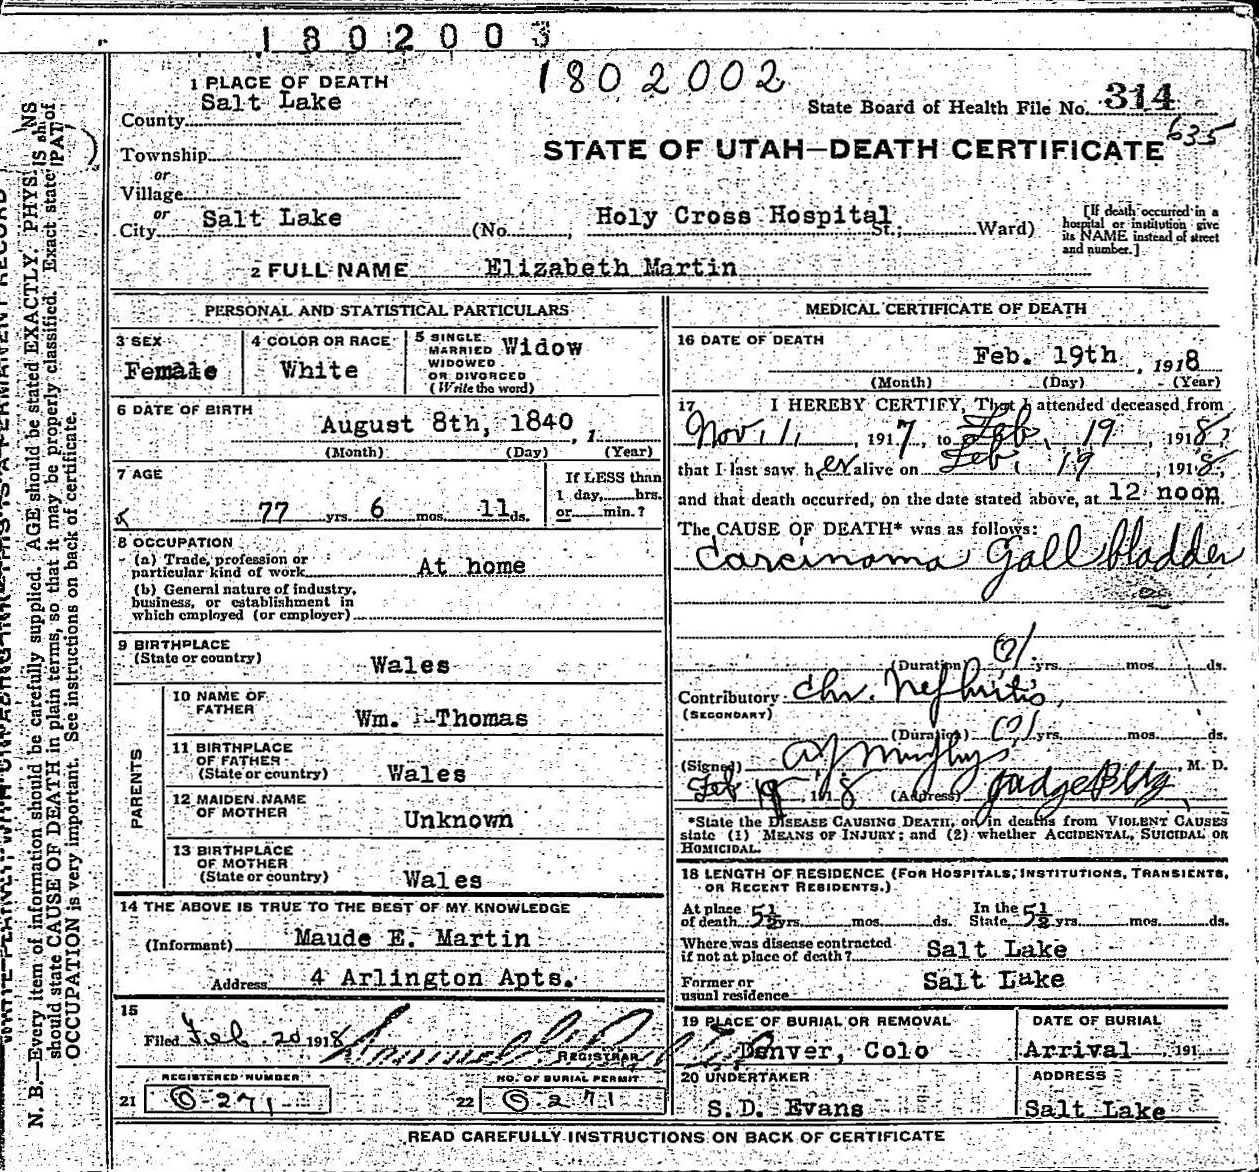 1802003
1802002
1 PLACE OF DEATH
County Salt Lake
State Board of Health File No. 314
635
Township
or
Village
or
City Salt Lake
STATE OF UTAH—DEATH CERTIFICATE
(No. Holy Cross Hospital St.; Ward)
[If death occurred in a
hospital or institution give
its NAME instead of street
and number.]
2 FULL NAME Elizabeth Martin
PERSONAL AND STATISTICAL PARTICULARS
3 SEX
Female
4 COLOR OR RACE
White
5 SINGLE
MARRIED
WIDOWED
OR DIVORCED
(Write the word)
Widow
6 DATE OF BIRTH
August 8th, 1840, 1
(Month) (Day) (Year)
7 AGE
77 yrs. 6 mos. 11 ds.
If LESS than
1 day, hrs.
or min.?
8 OCCUPATION
(a) Trade, profession or
particular kind of work At home
(b) General nature of industry,
business, or establishment in
which employed (or employer)
9 BIRTHPLACE
(State or country) Wales
PARENTS
10 NAME OF
FATHER Wm. Thomas
11 BIRTHPLACE
OF FATHER
(State or country) Wales
12 MAIDEN NAME
OF MOTHER Unknown
13 BIRTHPLACE
OF MOTHER
(State or country) Wales
14 THE ABOVE IS TRUE TO THE BEST OF MY KNOWLEDGE
(Informant) Maude E. Martin
Address 4 Arlington Apts.
15
Filed Feb. 20 1918
REGISTRAR
REGISTERED NUMBER
21 O-271
NO. OF BURIAL PERMIT
22 O-271
MEDICAL CERTIFICATE OF DEATH
16 DATE OF DEATH
Feb. 19th, 1918
(Month) (Day) (Year)
17 I HEREBY CERTIFY, That I attended deceased from
Nov. 1, 1917, to Feb. 19, 1918,
that I last saw her alive on Feb. 19, 1918,
and that death occurred, on the date stated above, at 12 noon
The CAUSE OF DEATH* was as follows:
Carcinoma Gall bladder
(Duration) (?) yrs. mos. ds.
Contributory Chr. Nephritis
(SECONDARY)
(Duration) (?) yrs. mos. ds.
(Signed) A J Murphy, M. D.
Feb 19, 1918 (Address) Judge Bldg
*State the DISEASE CAUSING DEATH, or, in deaths from VIOLENT CAUSES
state (1) MEANS OF INJURY; and (2) whether ACCIDENTAL, SUICIDAL OR
HOMICIDAL.
18 LENGTH OF RESIDENCE (FOR HOSPITALS, INSTITUTIONS, TRANSIENTS,
OR RECENT RESIDENTS.)
At place
of death 5½ yrs. mos. ds.
In the
State 5½ yrs. mos. ds.
Where was disease contracted
if not at place of death? Salt Lake
Former or
usual residence Salt Lake
19 PLACE OF BURIAL OR REMOVAL
Denver, Colo
DATE OF BURIAL
Arrival 191
20 UNDERTAKER
S.D. Evans
ADDRESS
Salt Lake
READ CAREFULLY INSTRUCTIONS ON BACK OF CERTIFICATE
N. B.—Every item of information should be carefully supplied. AGE should be stated EXACTLY.
should state CAUSE OF DEATH in plain terms, so that it may be properly classified. Exact
OCCUPATION is very important. See instructions on back of certificate.